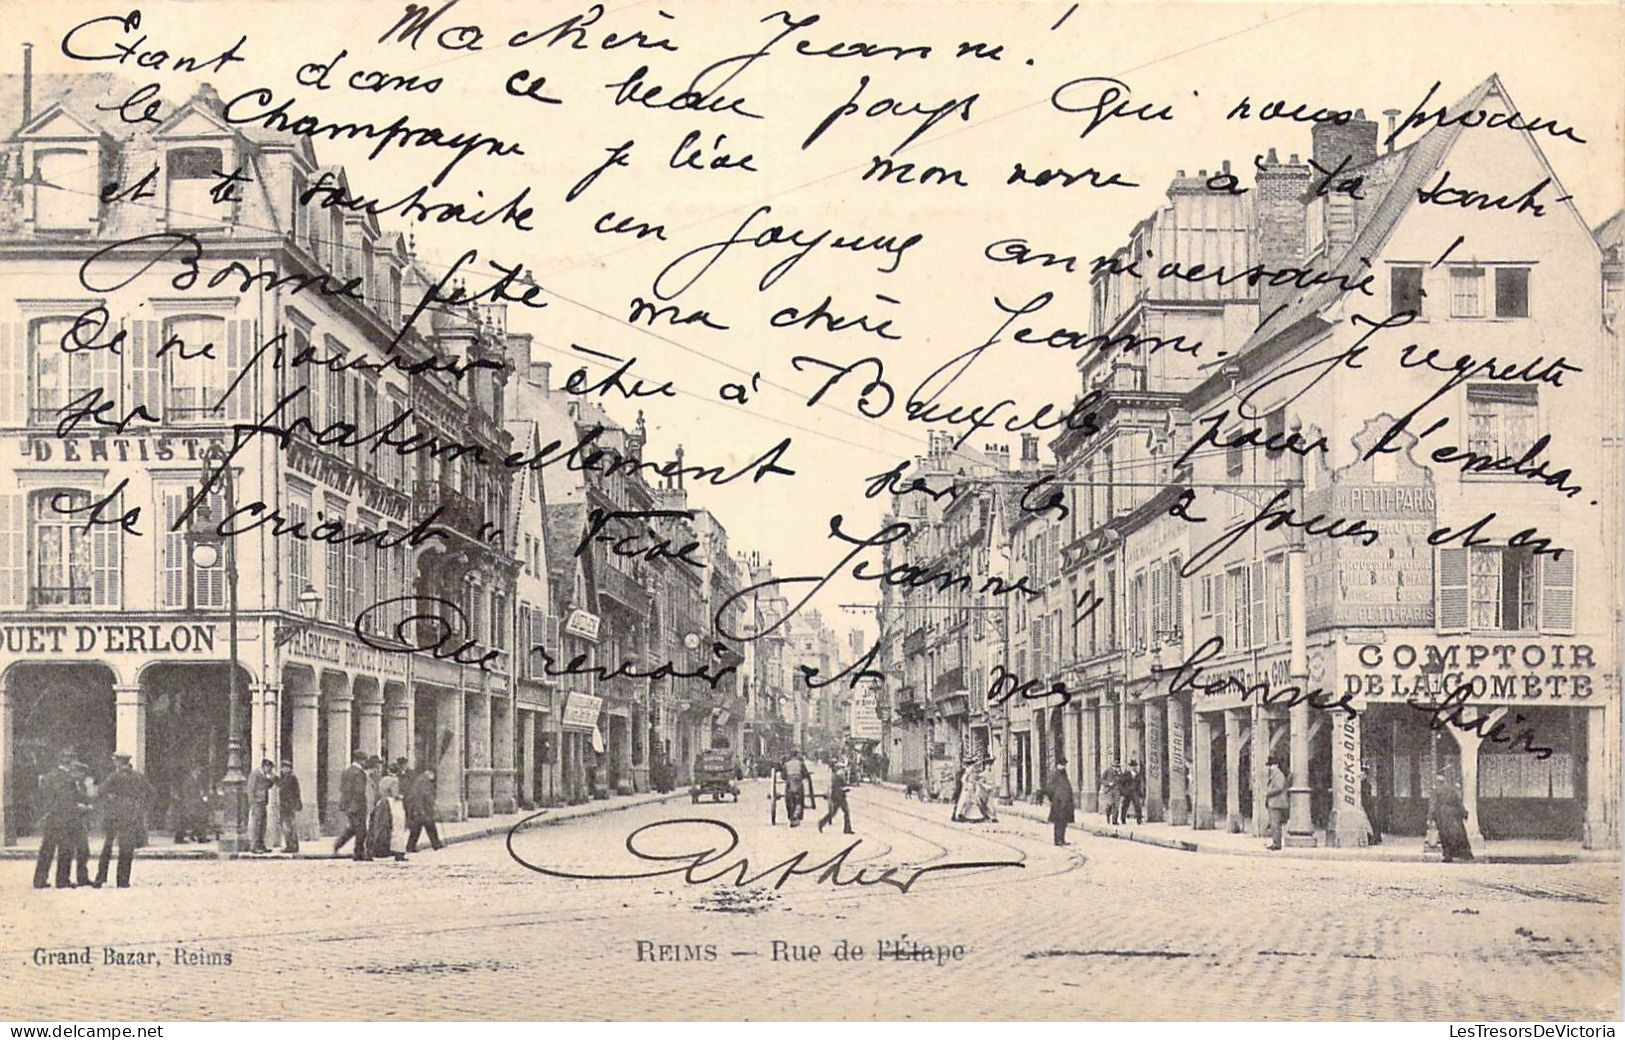 Ma chère Jeanne!
Etant dans ce beau pays Qui nous procure
le Champagne je lève mon verre à ta santé
et te souhaite un joyeux anniversaire!
Bonne fête ma chère Jeanne! Je regrette
De ne pouvoir être à Bruxelles pour t'embras.
ser fraternellement sur les 2 joues et en
te criant "Vive Jeanne"
Au revoir et mes bonnes
Arthur
DENTISTE
OUET D'ERLON
PHARMACIE
AU PETIT-PARIS
PETIT-PARIS
COMPTOIR
DE LA COMÈTE
BOCK
Grand Bazar, Reims
REIMS — Rue de l'Étape
LesTresorsDeVictoria